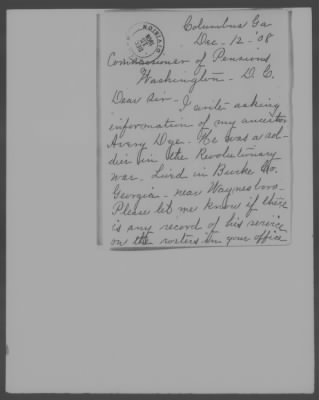 Columbus Ga
Dec - 12 - '08
Commissioner of Pensions
Washington - D. C.
Dear Sir - I write asking
information of my ancestor
Avery Dye. He was a sol-
dier in the Revolutionary
war. Lived in Burke Co.
Georgia - near Waynesboro -
Please let me know if there
is any record of his service
on the rosters in your office